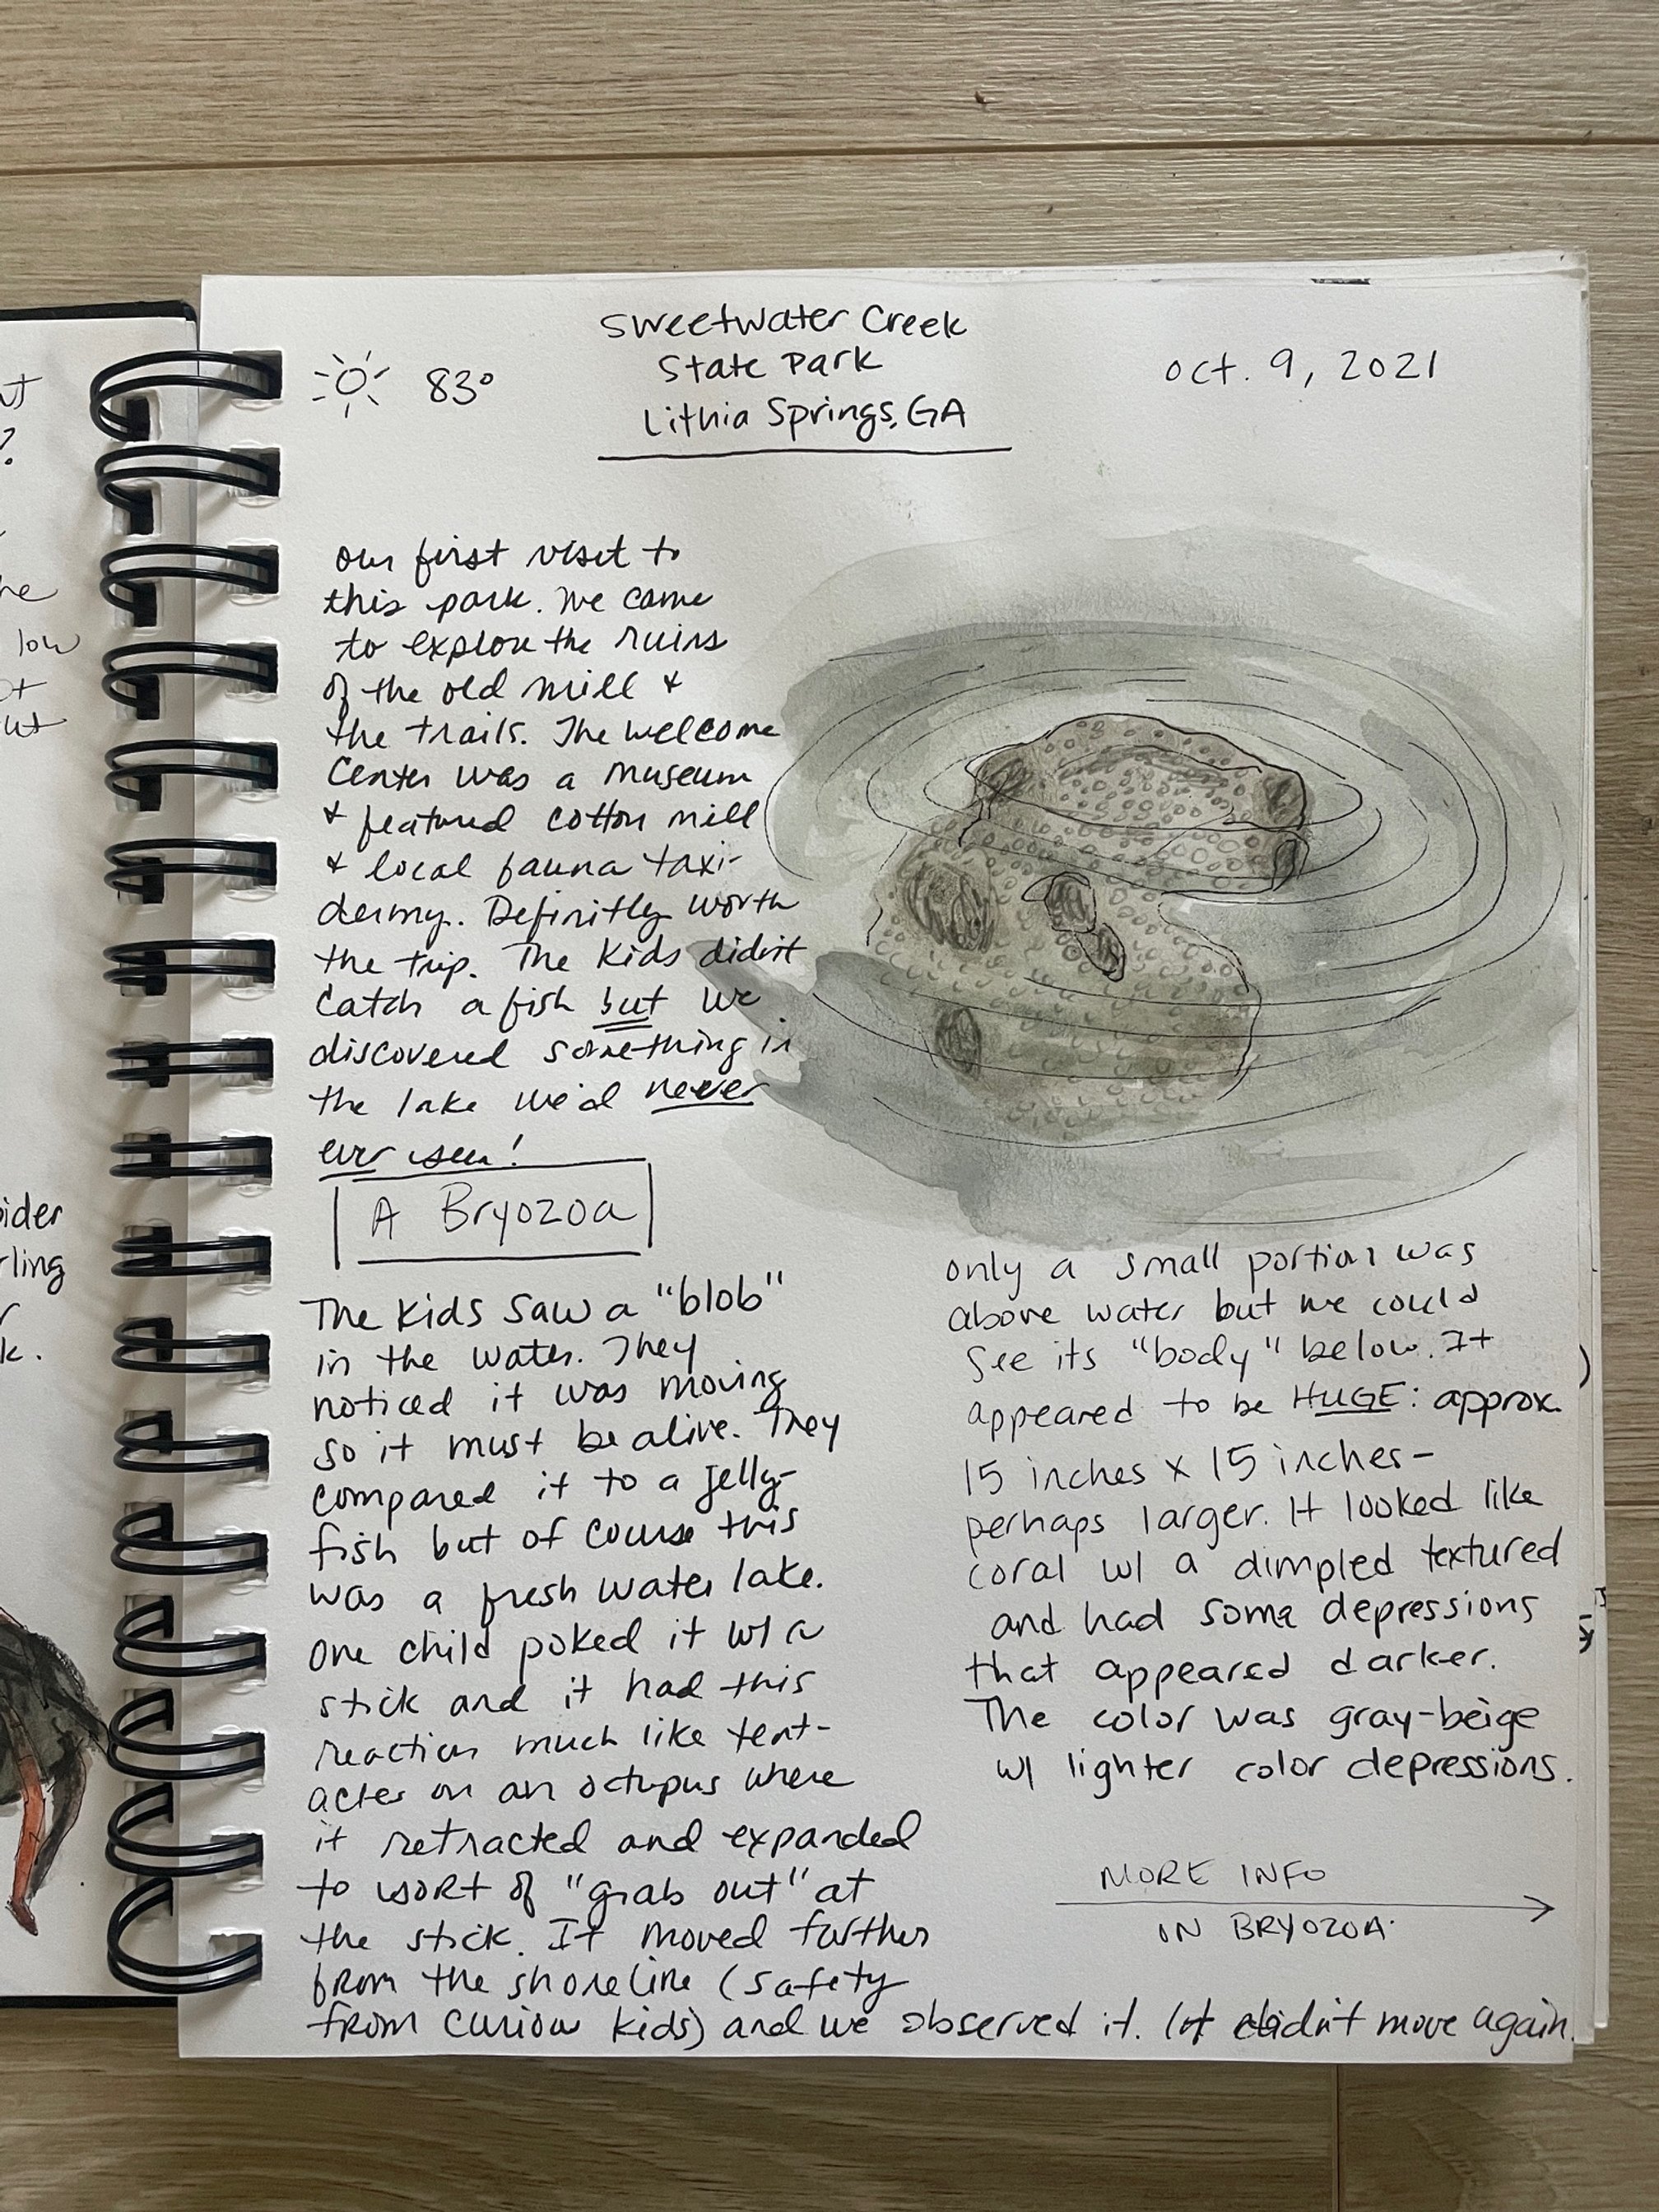 Sweetwater Creek
State Park
Lithia Springs, GA
83°
Oct. 9, 2021
our first visit to
this park. We came
to explore the ruins
of the old mill &
the trails. The welcome
center was a museum
& featured cotton mill
& local fauna taxi-
dermy. Definitly worth
the trip. The kids didn't
catch a fish but we
discovered something in
the lake we'd never
ever seen!
A Bryozoa
The kids saw a "blob"
in the water. They
noticed it was moving
so it must be alive. They
compared it to a jelly-
fish but of course this
was a fresh water lake.
One child poked it w/ a
stick and it had this
reaction much like tent-
acles on an octupus where
it retracted and expanded
to sort of "grab out" at
the stick. It moved further
from the shoreline (safety
from curious kids) and we observed it. It didn't move again.
only a small portion was
above water but we could
see its "body" below. It
appeared to be HUGE: approx.
15 inches x 15 inches-
perhaps larger. It looked like
coral w/ a dimpled textured
and had some depressions
that appeared darker.
The color was gray-beige
w/ lighter color depressions.
MORE INFO
IN BRYOZOA
ut
?
he
low
ot
ut
pider
rling
r
k.